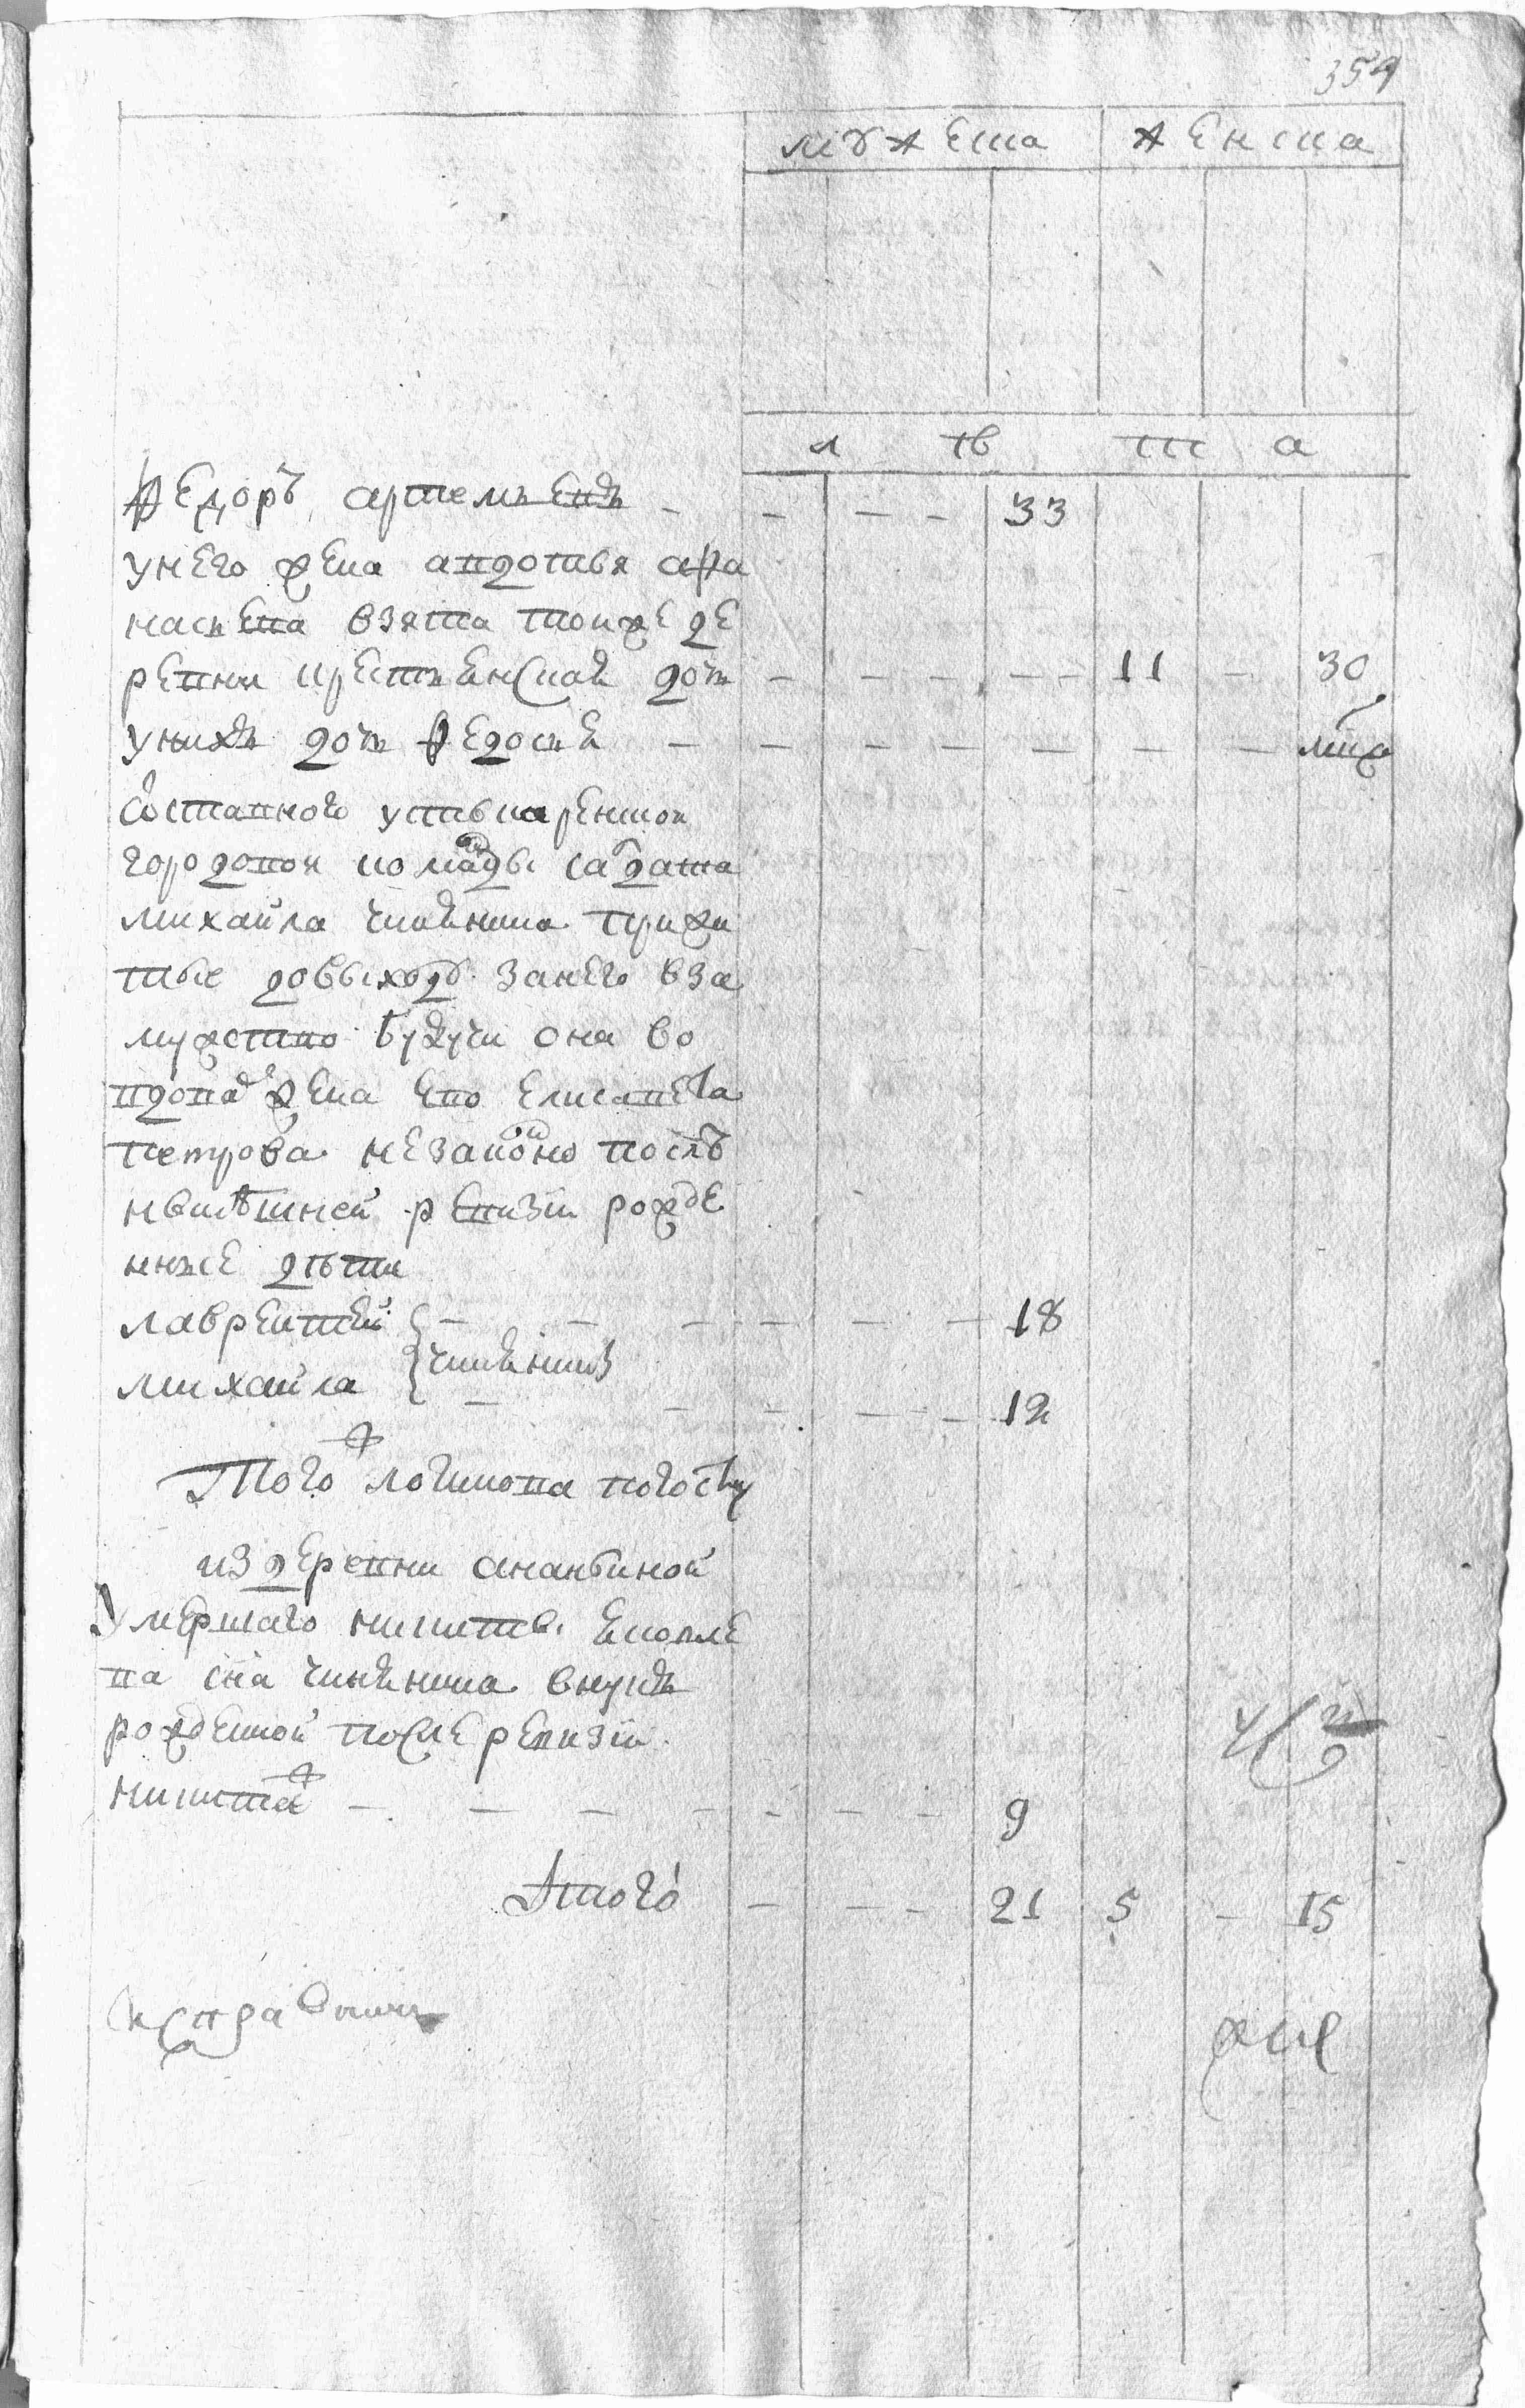 354
мужеска женска
л ѣ т а
Федоръ артемьевъ - - - - 33
унего жена авдотья афа
насьева взята тоиже де
ревни крестьянской доч - - - - 11 - 30
унихъ доч федосья - - - - - -
отставного устькаренгской
городовои команды салдата
михаила чик нина прижи
тые довыходу занего вза
мужство будучи она во
вдовах жена ево елисавета
петрова незаконно после
нынѣшней ревизии рожде
нные дѣти
лаврентей - - - - - - 18
михаила - - - - - 12
Того логинова погосту
из деревни ананьиной
Умершаго никиты яковле
ва сна внукъ
рожденной после ревизии
никита - - - - - - - 9
Итого - - - 21 5 - 15